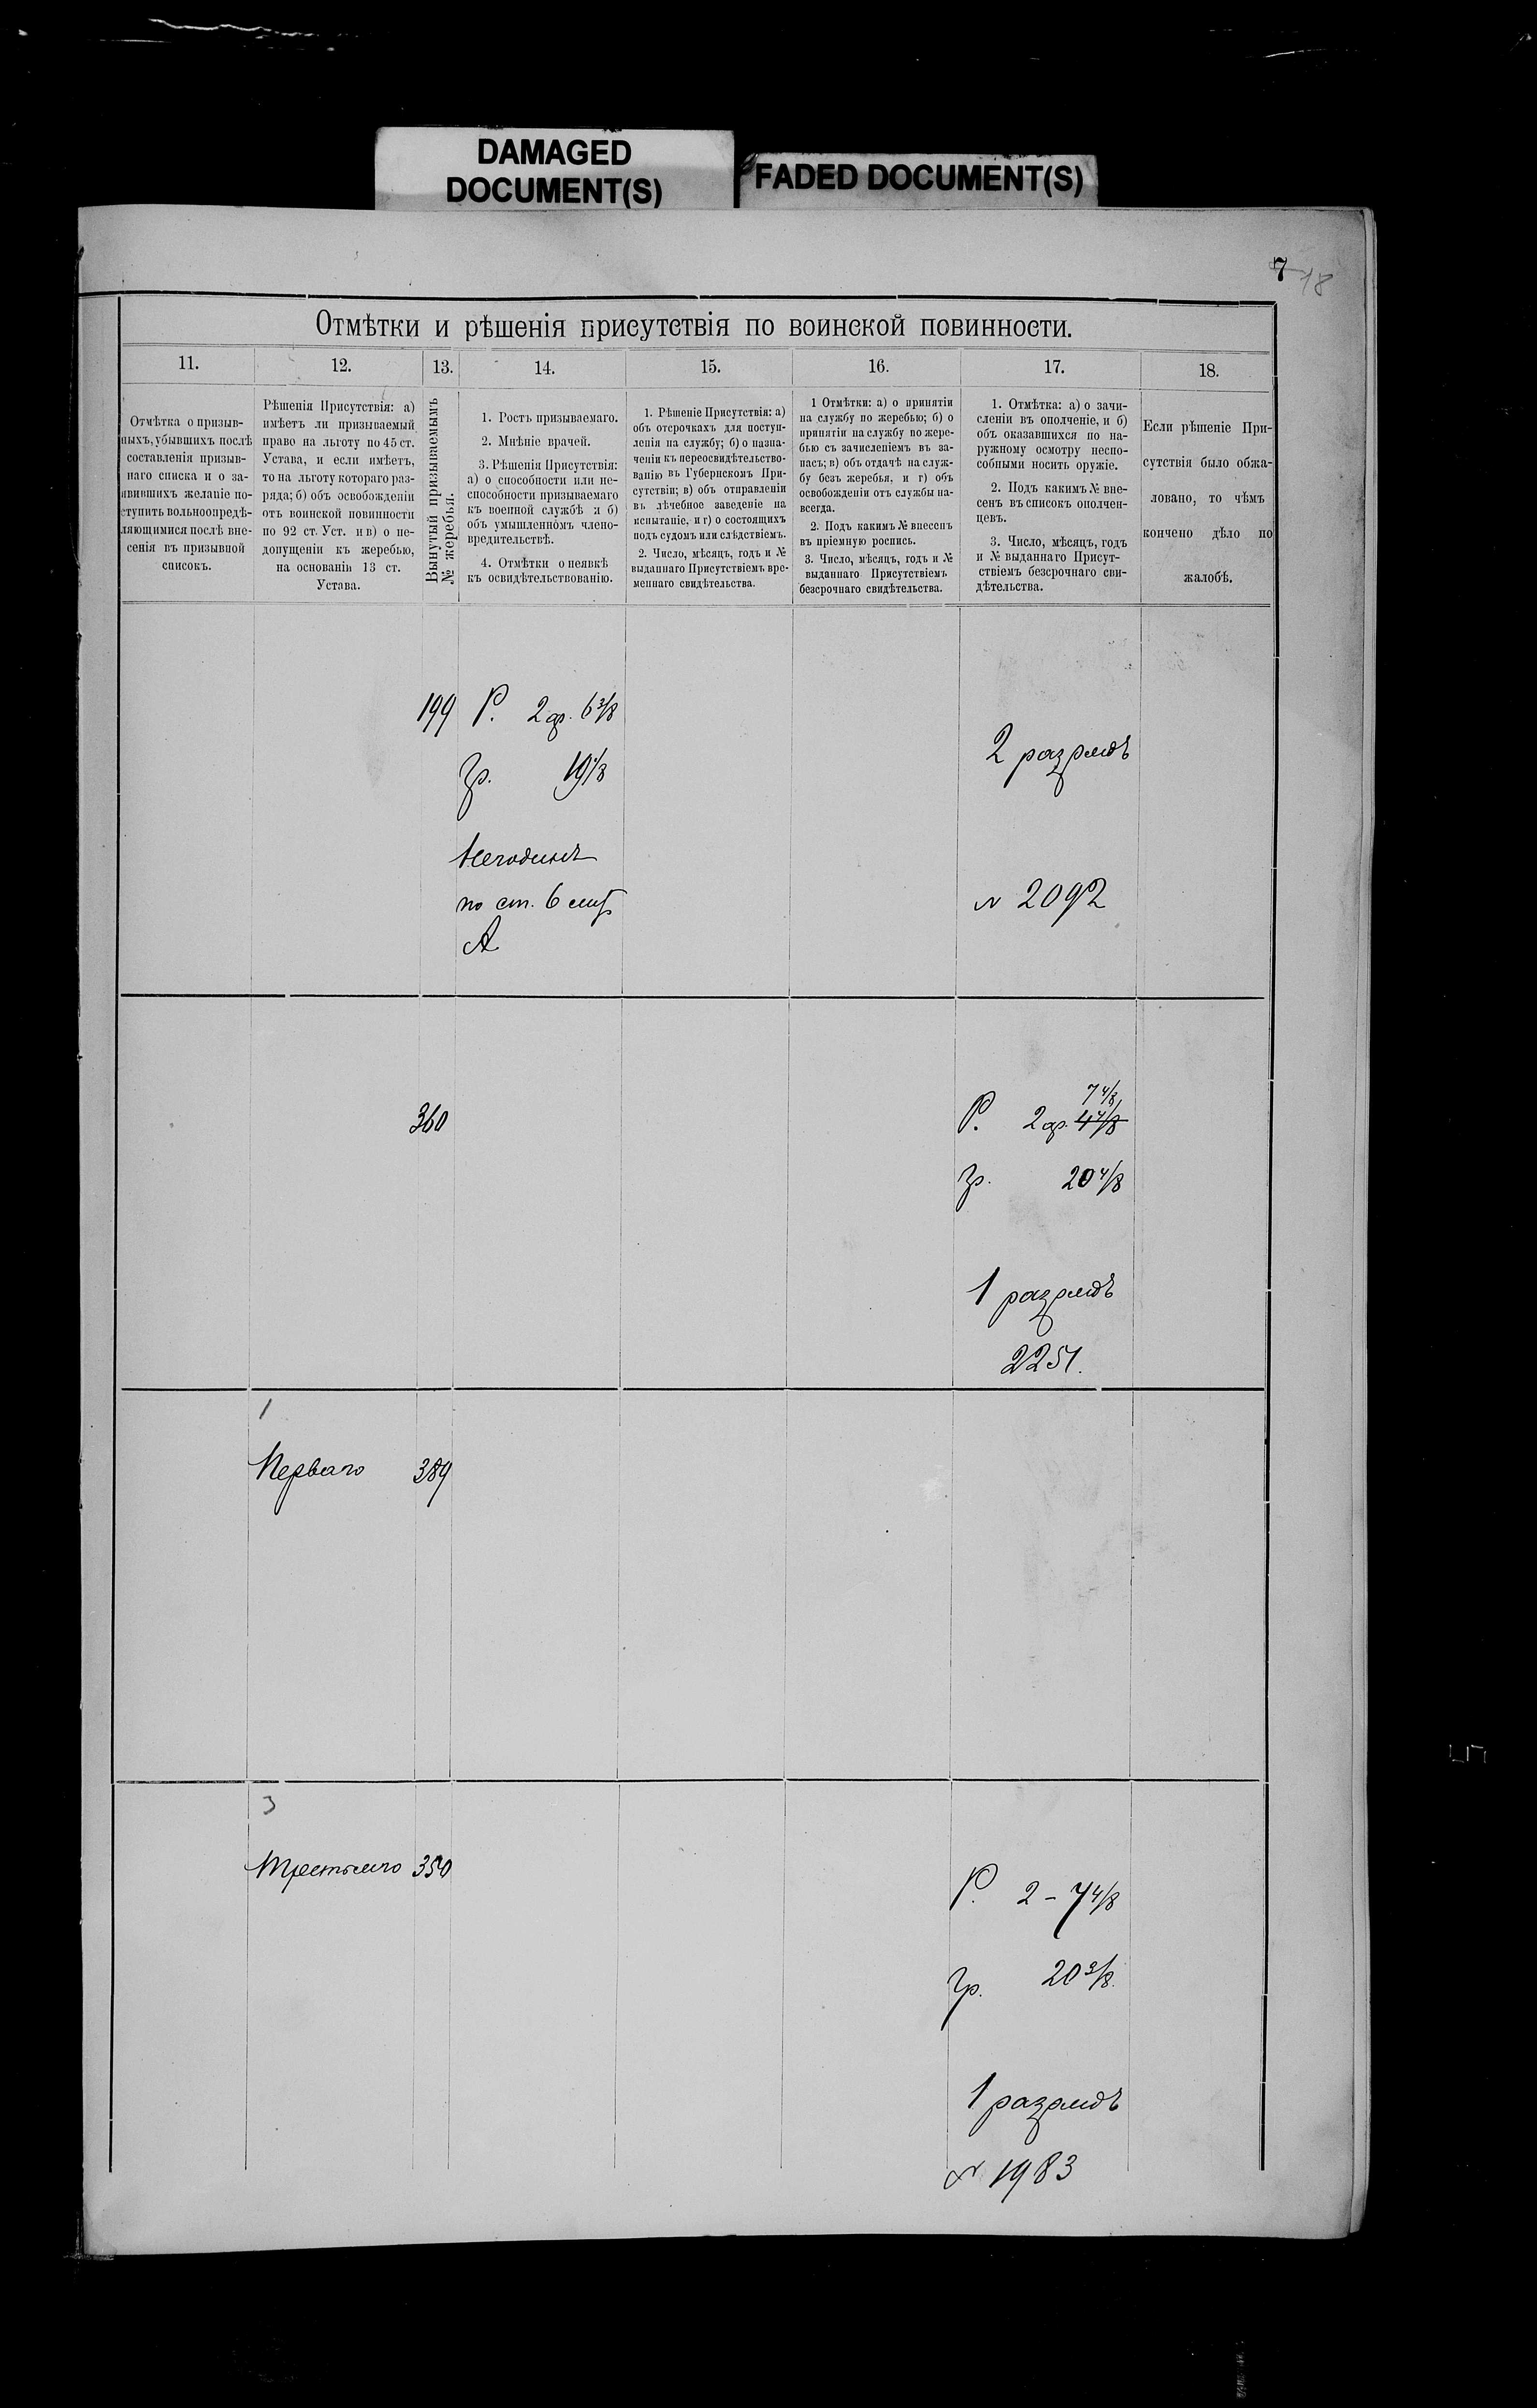 DAMAGED
DOCUMENT(S)
FADED DOCUMENT(S)
7 18
Отмѣтки и рѣшенія присутствія по воинской повинности.
11.
12.
13.
14.
15.
16.
17.
18.
Отмѣтка о призыв-
ныхъ, убывшихъ послѣ
составленія призыв-
наго списка и о за-
явившихъ желаніе по-
ступить вольноопредѣ-
ляющимися послѣ вне-
сенія въ призывной
списокъ.
Рѣшенія Присутствія: а)
имѣетъ ли призываемый
право на льготу по 45 ст.
Устава, и если имѣетъ,
то на льготу котораго раз-
ряда; б) объ освобожденіи
отъ воинской повинности
по 92 ст. Уст. и в) о не-
допущеніи къ жеребью,
на основаніи 13 ст.
Устава.
Вынутый призываемымъ
№ жеребья.
1. Ростъ призываемаго.
2. Мнѣніе врачей.
3. Рѣшенія Присутствія:
а) о способности или не-
способности призываемаго
къ военной службѣ и б)
объ умышленномъ члено-
вредительствѣ.
4. Отмѣтки о неявкѣ
къ освидѣтельствованію.
1. Рѣшеніе Присутствія: а)
объ отсрочкахъ для поступ-
ленія на службу; б) о назна-
ченіи къ переосвидѣтельство-
ванію въ Губернскомъ При-
сутствіи; в) объ отправленіи
въ лѣчебное заведеніе на
испытаніе, и г) о состоящихъ
подъ судомъ или слѣдствіемъ.
2. Число, мѣсяцъ, годъ и №
выданнаго Присутствіемъ вре-
меннаго свидѣтельства.
1 Отмѣтки: а) о принятіи
на службу по жеребью; б) о
принятіи на службу по жере-
бью съ зачисленіемъ въ за-
пасъ; в) объ отдачѣ на служ-
бу безъ жеребья, и г) объ
освобожденіи отъ службы на-
всегда.
2. Подъ какимъ № внесенъ
въ пріемную роспись.
3. Число, мѣсяцъ, годъ и №
выданнаго Присутствіемъ
безсрочнаго свидѣтельства.
1. Отмѣтка: а) о зачи-
сленіи въ ополченіе, и б)
объ оказавшихся по на-
ружному осмотру неспо-
собными носить оружіе.
2. Подъ какимъ № вне-
сенъ въ списокъ ополчен-
цевъ.
3. Число, мѣсяцъ, годъ
и № выданнаго Присут-
ствіемъ безсрочнаго сви-
дѣтельства.
Если рѣшеніе При-
сутствія было обжа-
ловано, то чѣмъ
кончено дѣло по
жалобѣ.
199 Р. 2 ар. 6 3/8
гр. 19 1/8
Негоденъ
по ст. 6 лит
А
2 разрядъ
№ 2092
360
7 4/8
Р. 2 ар. 4 4/8
гр. 20 4/8
1 разрядъ
2251.
1
Перваго 389
3
Третьяго 350
Р. 2 - 7 4/8
гр. 20 3/8.
1 разрядъ
№ 1983